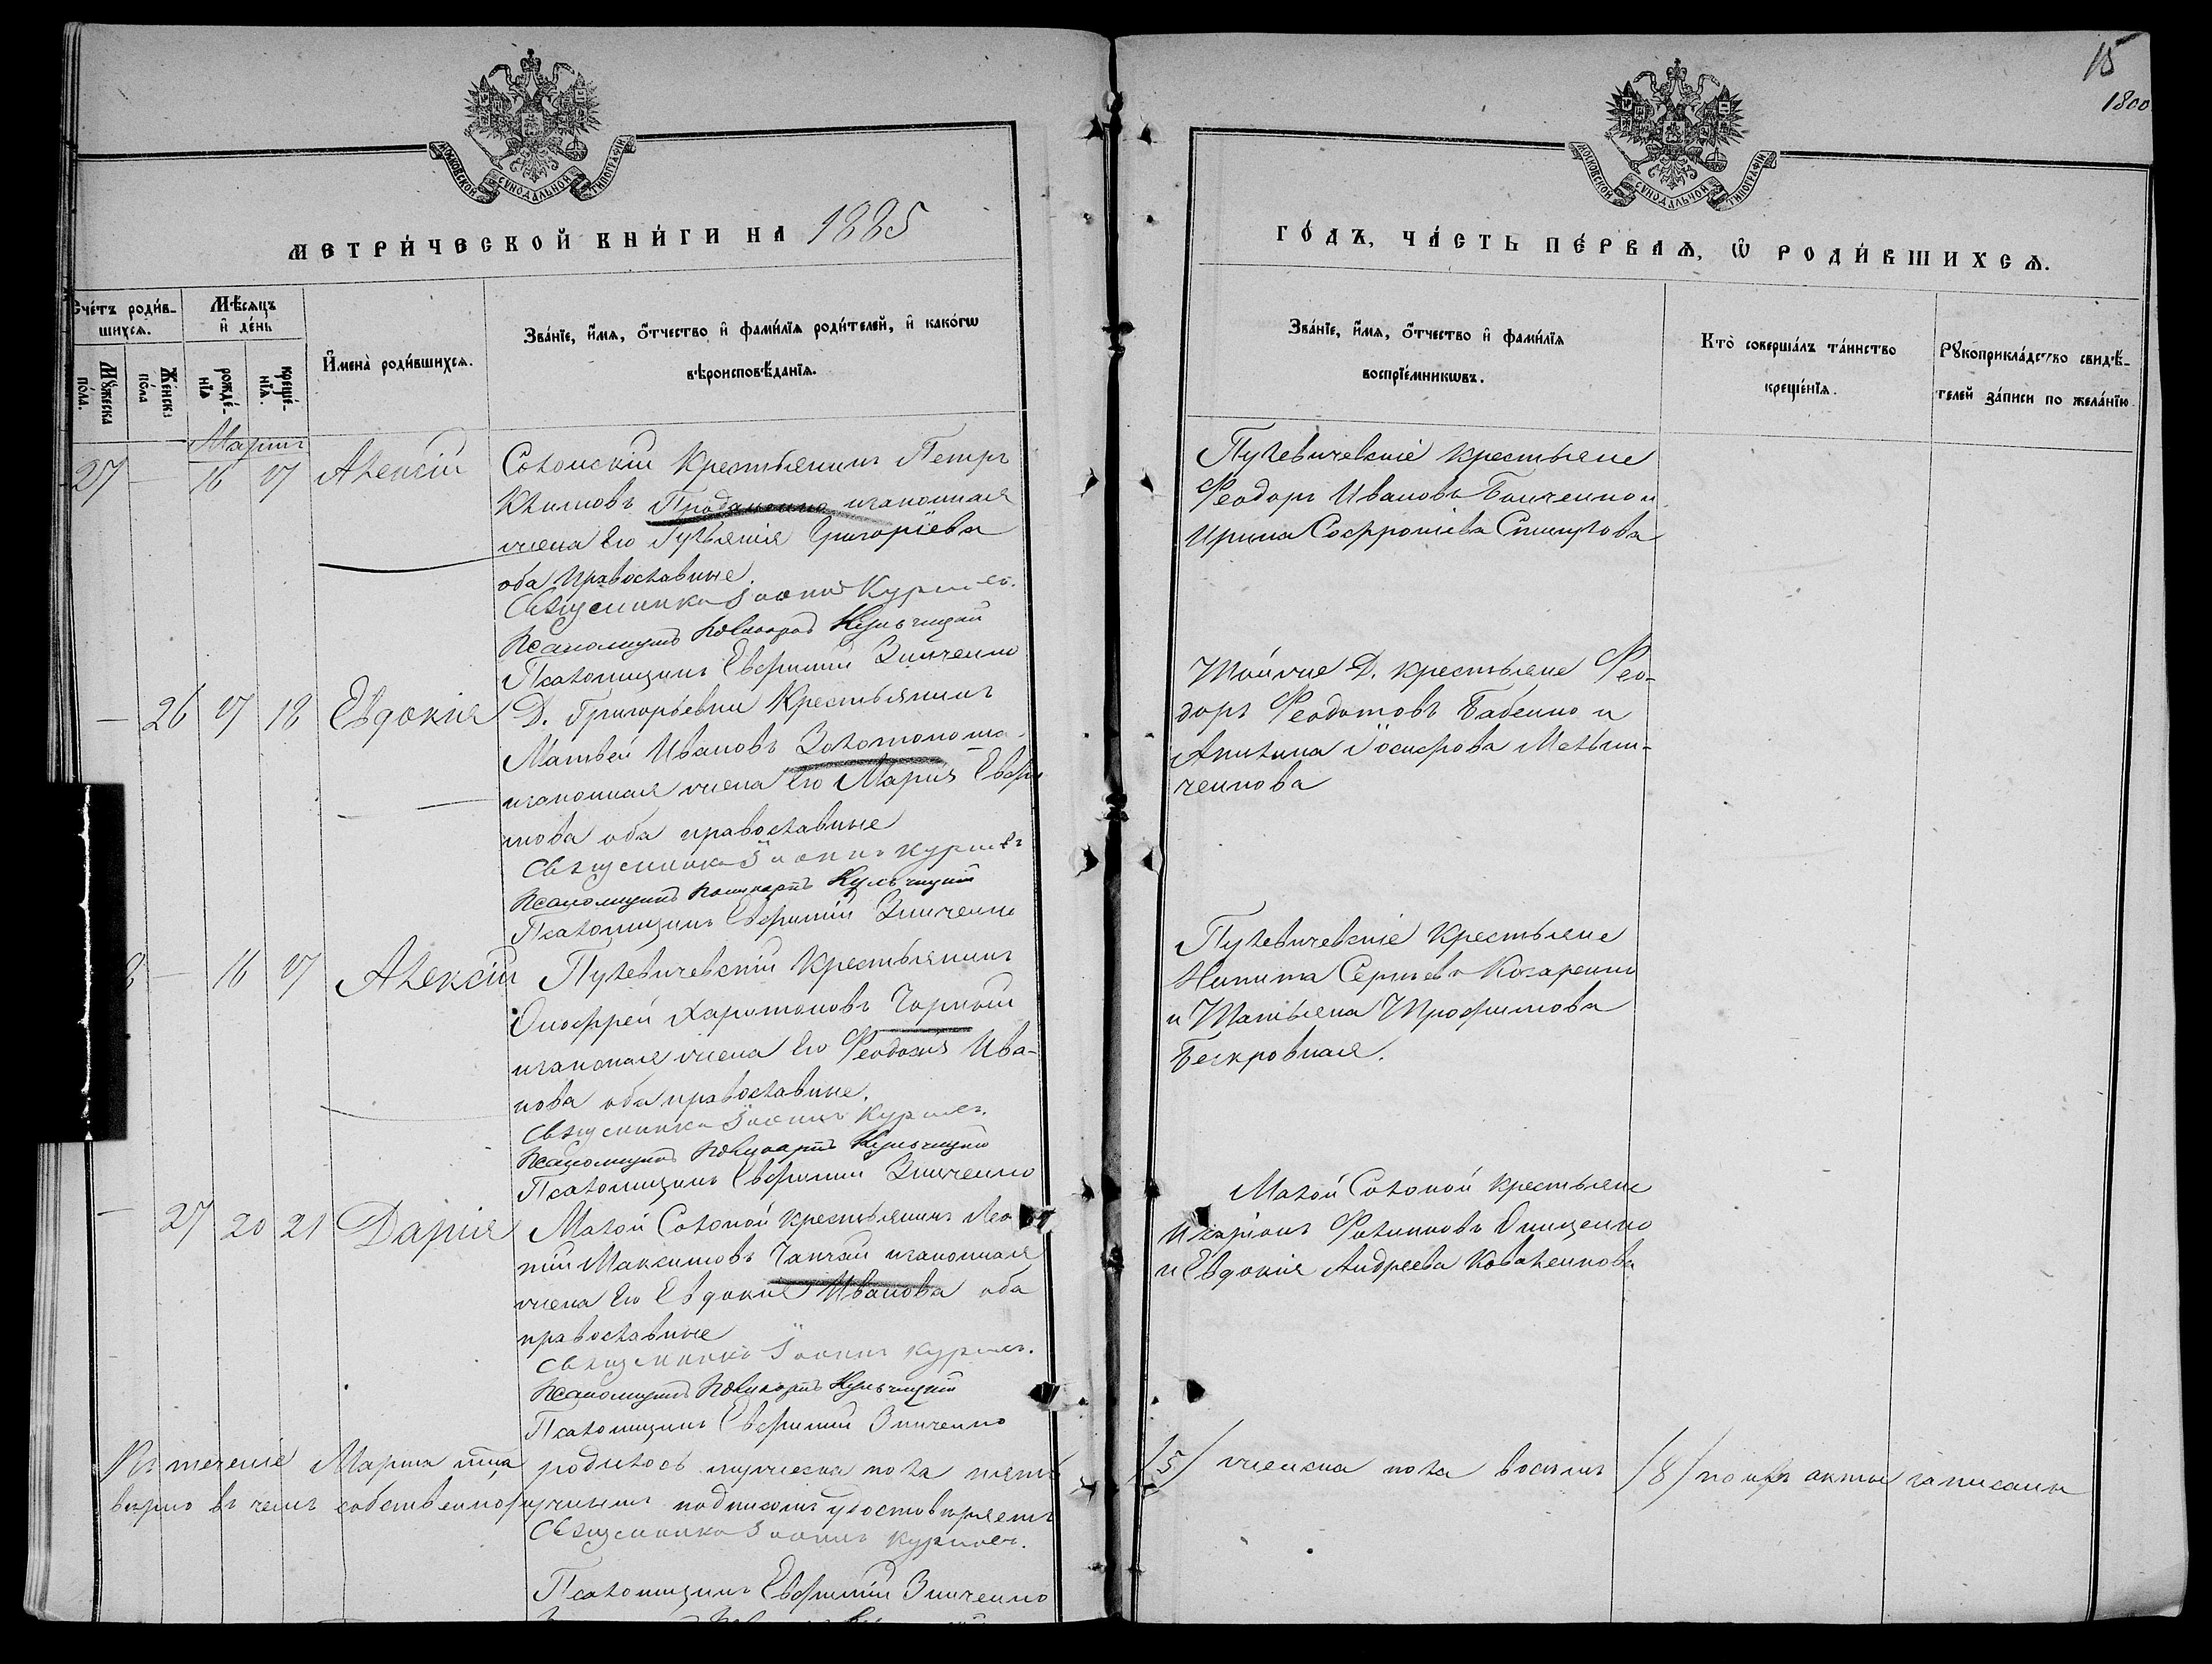 15
1800
МОСКОВСКОЙ СѴНОДАЛЬНОЙ ТИПОГРАФІИ
МОСКОВСКОЙ СѴНОДАЛЬНОЙ ТИПОГРАФІИ
МЕТРИ́ЧЕСКОЙ КНИ́ГИ НА 1885
ГО́ДЪ, ЧА́СТЬ ПЕ́РВАѦ, Ѡ҆ РОДИ́ВШИХСѦ.
Сче́тъ роди́в-
шихсѧ.
Мѣ́сѧцъ
и҆ де́нь
Мꙋ́жеска
по́ла.
Же́нска
по́ла
рожде́-
нїѧ
креще́-
нїѧ.
И҆мена̀ роди́вшихсѧ.
Зва́нїе, и҆́мѧ, ѻ҆́тчество и҆ фами́лїѧ роди́телей, и҆ како́гѡ
вѣроисповѣ́данїѧ.
Зва́нїе, и҆́мѧ, ѻ҆́тчество и҆ фами́лїѧ
воспрїе́мникѡвъ.
Кто̀ соверша́лъ та́инство
креще́нїѧ.
Рꙋкоприкла́дство свидѣ́-
телей за́писи по жела́нїю
Мартъ
27 — 16 17 Алексій
Сохонскій Крестьянинъ Петръ
Климовъ законная
жена его Григоріева
оба православные.
Священникъ Іоаннъ
Псаломщикъ Поликарпъ Кульчицкій
Псаломщикъ Евфимій Зинченко
Пулевичевскіе крестьяне
Феодоръ Ивановъ и
Ирина Софроніева
— 26 17 18 Евдокія
Д. Григорьевки Крестьянинъ
Матвей Ивановъ Золотонога
законная жена его Марія Евфи
мова оба православные
Священникъ Іоаннъ
Псаломщикъ Поликарпъ Кульчицкій
Псаломщикъ Евфимій Зинченко
Тойже Д. крестьяне Фео-
доръ Феодотовъ Бабенко и
Акилина Іосифова Мельни-
ченкова
8 — 16 17 Алексій
Пулевичевскій Крестьянинъ
Онофрей Харитоновъ Чорный
законная жена его Феодосія Ива-
нова оба православные.
Священникъ Іоаннъ
Псаломщикъ Поликарпъ Кульчицкій
Псаломщикъ Евфимій Зинченко
Пулевичевскіе Крестьяне
Никита Сергѣевъ Козаренко
и Татьяна Трофимова
Безкровная.
— 27 20 21 Дарія
Малой Солоной крестьянинъ Лео
тій Максимовъ законная
жена его Евдокія Иванова оба
православные
Священникъ Іоаннъ
Псаломщикъ Поликарпъ Кульчицкій
Псаломщикъ Евфимій Зинченко
Малой Солоной крестьяне
Иларіонъ Филиповъ Онищенко
и Евдокія Андреева Коваленкова
Въ теченіе Марта м-ца родилось мужеска пола пять /5/ женска пола восемь /8/ акты записаны
вѣрно въ чемъ собственноручнымъ подписомъ удостовѣряемъ
Священникъ Іоаннъ
Псаломщикъ Евфимій Зинченко